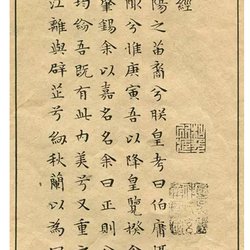 經
陽之苗裔兮朕皇考曰伯庸攝
陬兮惟庚寅吾以降皇覽揆余
肇錫余以嘉名名余曰正則兮
均紛吾既有此內美兮又重
江離與辟芷兮紉秋蘭以為